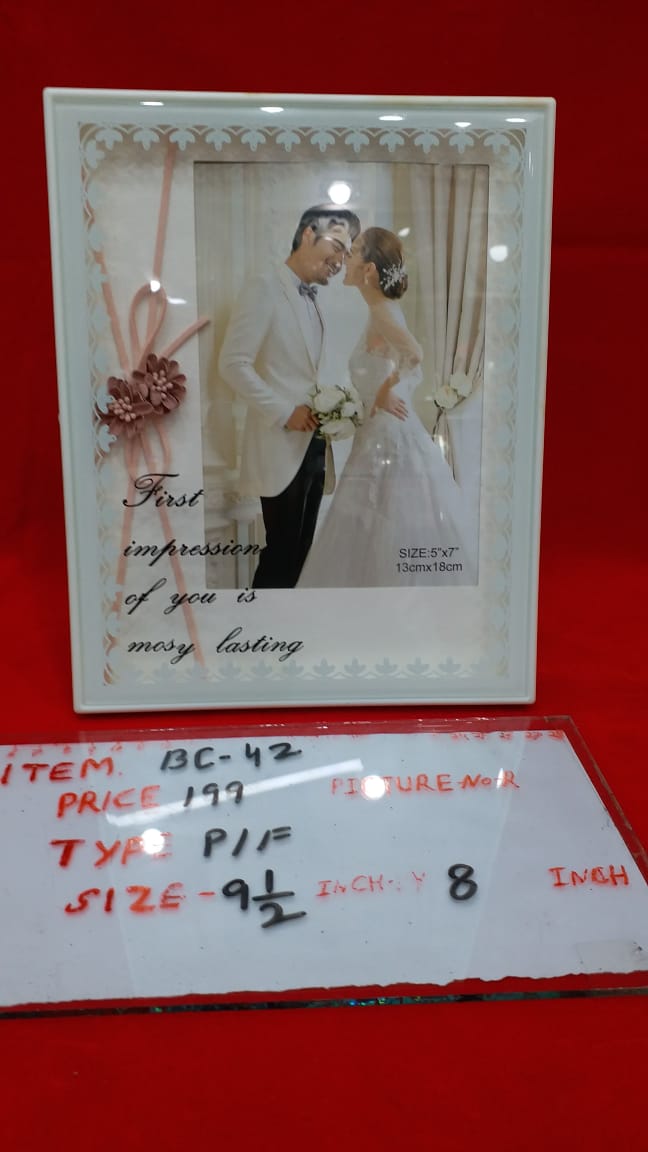 First
impression
of you is
mosy lasting
SIZE:5"x7"
13cmx18cm
ITEM. BC-42
PRICE 199 PICTURE-NO-R
TYPE P/F
SIZE-9 1/2 INCH-Y 8 INCH